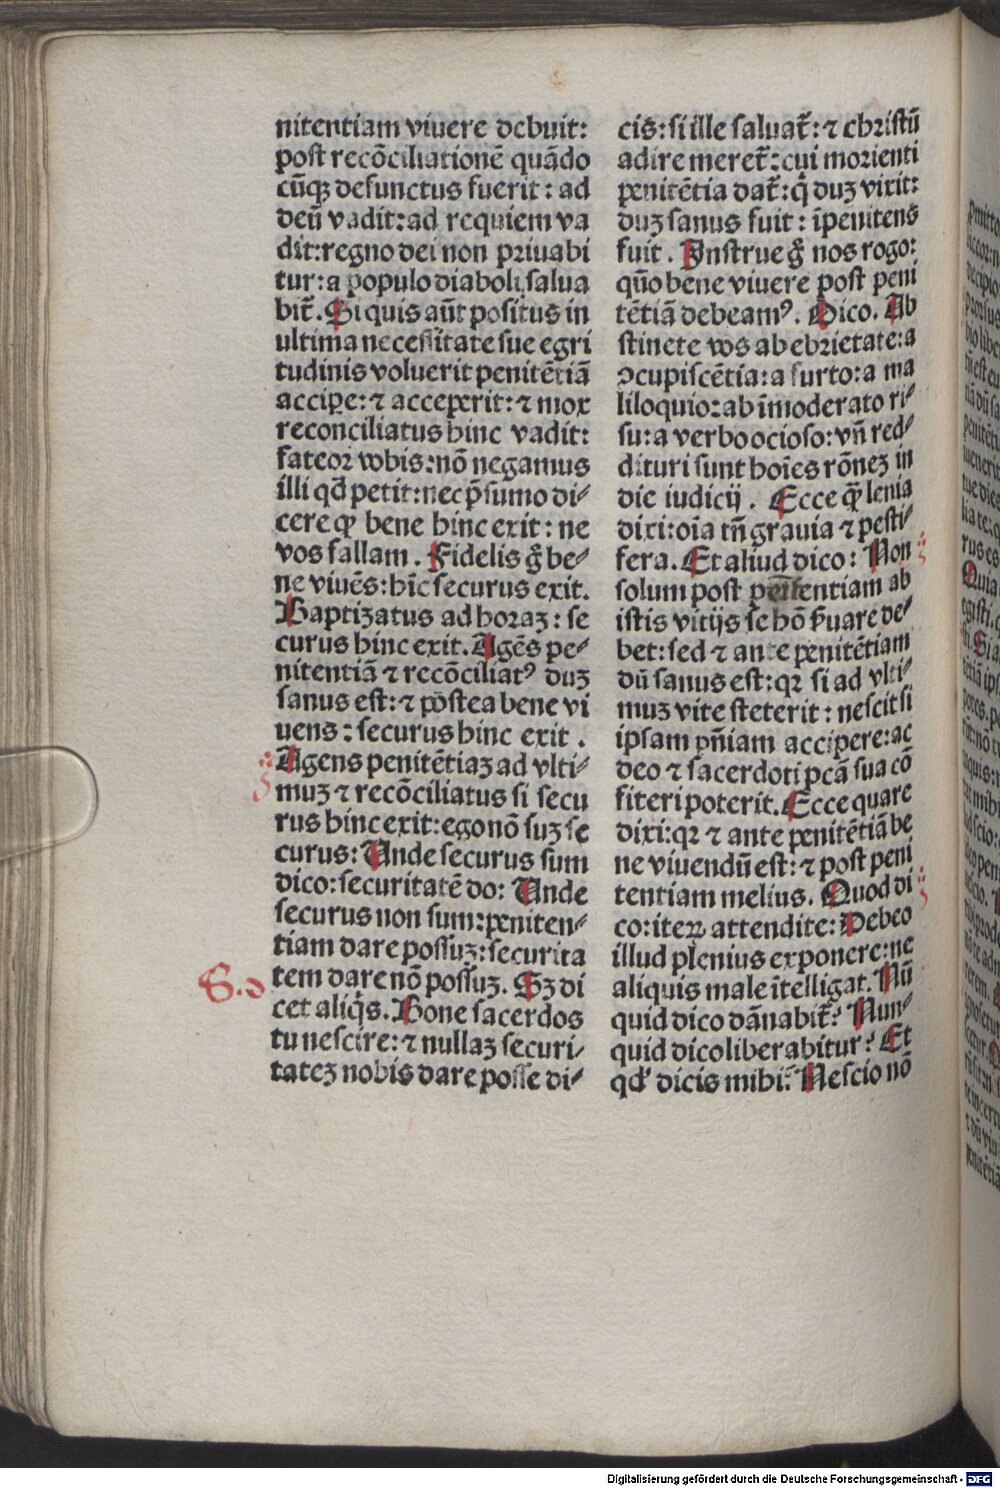 nitentiam viuere debuit:
post recōciliationē quādo
cūqꝫ defunctus fuerit: ad
deū vadit: ad requiem va
dit: regno dei non priuabi
tur: a populo diaboli salua
bit᷑. Si quis aūt positus in
ultima necessitate sue egri
tudinis voluerit penitētiā
accipe: ⁊ acceperit: ⁊ mox
reconciliatus hinc vadit:
fateor vobis: nō negamus
illi qd̓ petit: nec p̄sumo di⸗
cere ꝙ bene hinc exit: ne
vos fallam. Fidelis g̊ be⸗
ne viuēs: hīc securus exit.
Baptizatus ad horaꝫ: se
curus hinc exit. Agēs pe⸗
nitentiā ⁊ recōciliatꝰ duꝫ
sanus est: ⁊ postea bene vi
uens: securus hinc exit.
Agens penitētiaꝫ ad vlti⸗
muꝫ ⁊ recōciliatus si secu
rus hinc exit: ego nō suꝫ se
curus: Unde securus sum
dico: securitatē do: Unde
securus non sum: peniten⸗
tiam dare possuꝫ: securita
S. d tem dare nō possuꝫ. Sꝫ di
cet aliq̇s. Bone sacerdos
tu nescire: ⁊ nullaꝫ securi⸗
tateꝫ nobis dare posse di⸗
cis: si ille saluat᷑: ⁊ christū
adire meret᷑: cui morienti
penitētia dat᷑: q̇ duꝫ vixit:
duꝫ sanus fuit: īpenitens
fuit. Instrue g̊ nos rogo:
quō bene viuere post peni
tētiā debeamꝰ. Dico. Ab
stinete vos ab ebrietate: a
ↄcupiscētia: a furto: a ma
liloquio: ab īmoderato ri⸗
su: a verbo ocioso: vn̄ red⸗
dituri sunt hoīes rōneꝫ in
die iudicij. Ecce ꝙ̄ lenia
dixi: oīa tn̄ grauia ⁊ pesti⸗
fera. Et aliud dico: Non
solum post penitentiam ab
istis vitijs se hō ẜuare de⸗
bet: sed ⁊ ante penitētiam
dū sanus est: qꝛ si ad vlti⸗
muꝫ vite steterit: nescit si
ipsam pn̄iam accipere: ac
deo ⁊ sacerdoti pcā sua cō
fiteri poterit. Ecce quare
dixi: qꝛ ⁊ ante penitētiā be
ne viuendū est: ⁊ post peni
tentiam melius. Quod di
co: iteꝝ attendite: Debeo
illud plenius exponere: ne
aliquis male ītelligat. Nū
quid dico dānabit᷑? Nun⸗
quid dico liberabitur? Et
qd̓ dicis mihi? Nescio nō
Digitalisierung gefördert durch die Deutsche Forschungsgemeinschaft - DFG